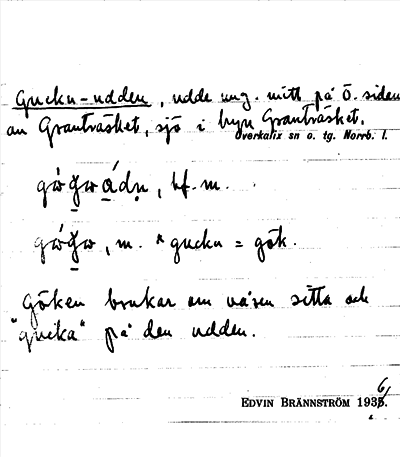 Gucku-udden, udde ung. mitt på Ö. siden
av Granträsket, sjö i byn Granträsket.
Överkalix sn o. tg. Norrb. l.
bf. m.
, m. "gucku = gök.
Göken brukar om våren sitta och
"gucka" på den udden.
EDVIN BRÄNNSTRÖM 1936.